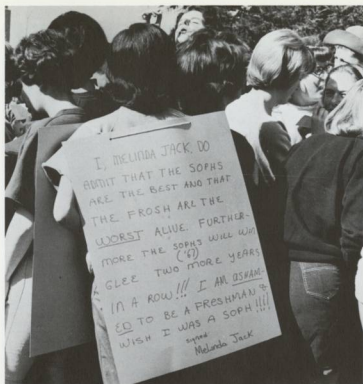 I, MELINDA JACK, DO
ADMIT THAT THE SOPHS
ARE THE BEST AND THAT
THE FROSH ARE THE
WORST ALIVE. FURTHER-
MORE THE SOPHS WILL WIN
('67)
GLEE TWO MORE YEARS
IN A ROW!!! I AM ASHAM-
ED TO BE A FRESHMAN &
WISH I WAS A SOPH!!!!
signed
Melinda Jack